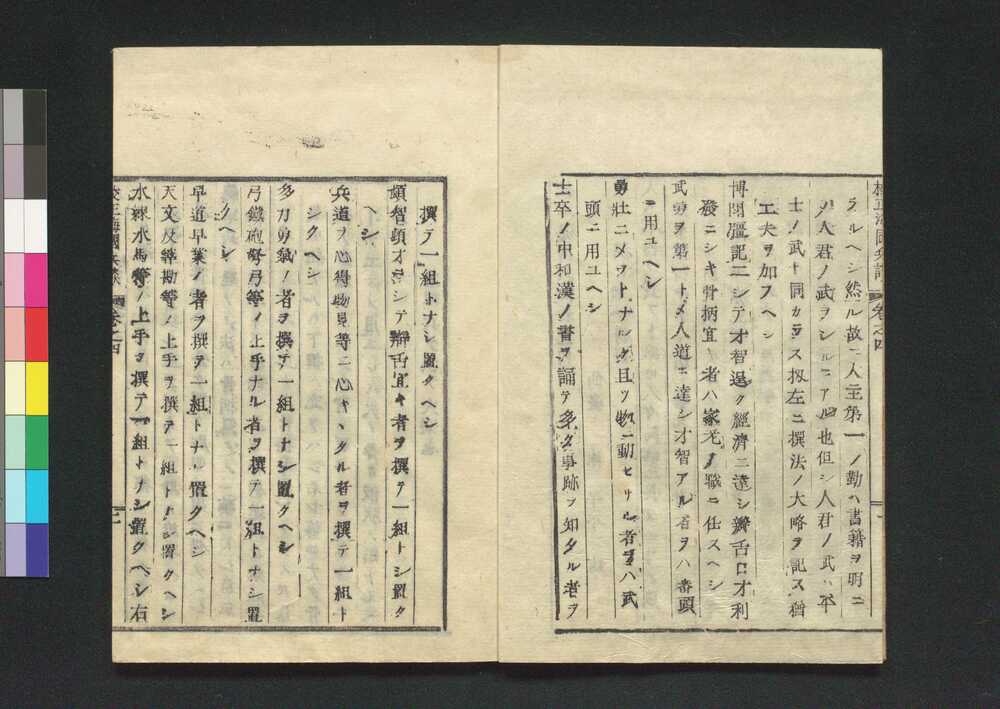 校正海國兵談 卷之四
ラルヘシ然ル故ニ人主第一ノ勤ハ書籍ヲ明ニ
人君ノ武ヲシルニアル也但シ人君ノ武ハ卒
士ノ武ト同カラス扨左ニ撰法ノ大略ヲ記ス猶
工夫ヲ加フヘシ
博聞彊記ニシテ才智逞ク經濟ニ達シ辨舌口才利
發ニシキ骨柄宜キ者ハ家老ノ職ニ任スヘシ
武勇ヲ第一トメ人道ニ達シ才智アル者ヲハ番頭
ニ用ユヘシ
勇壯ニメワトナシク且ツ物ニ動セサル者ヲハ武
頭ニ用ユヘシ
士卒ノ中和漢ノ書ヲ誦テ多ク事跡ヲ知タル者ヲ
撰テ一組トナシ置クヘシ
頓智頓才ニシテ辯舌宜キ者ヲ撰テ一組トシ置ク
ヘシ
兵道ヲ心得物見等ニ心キヽタル者ヲ撰テ一組ト
シクヘシ
多力勇氣ノ者ヲ撰テ一組トナシ置クヘシ
弓鐵砲弩弓等ノ上手ナル者ヲ撰テ一組トナシ置
クヘシ
早道早業ノ者ヲ撰テ一組トナシ置クヘシ
天文及算勘等ノ上手ヲ撰テ一組トナシ置クヘシ
水練水馬等ノ上手ヲ撰テ一組トナシ置クヘシ右
校正海國兵談 卷之四